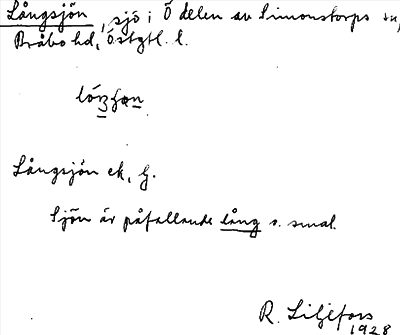 Långsjön, sjö i Ö delen av Simonstorps sn,
Bråbo hd, Östgtl. l.
Långsjön ek, G.
Sjön är påfallande lång o. smal.
R. Liljefors
1928